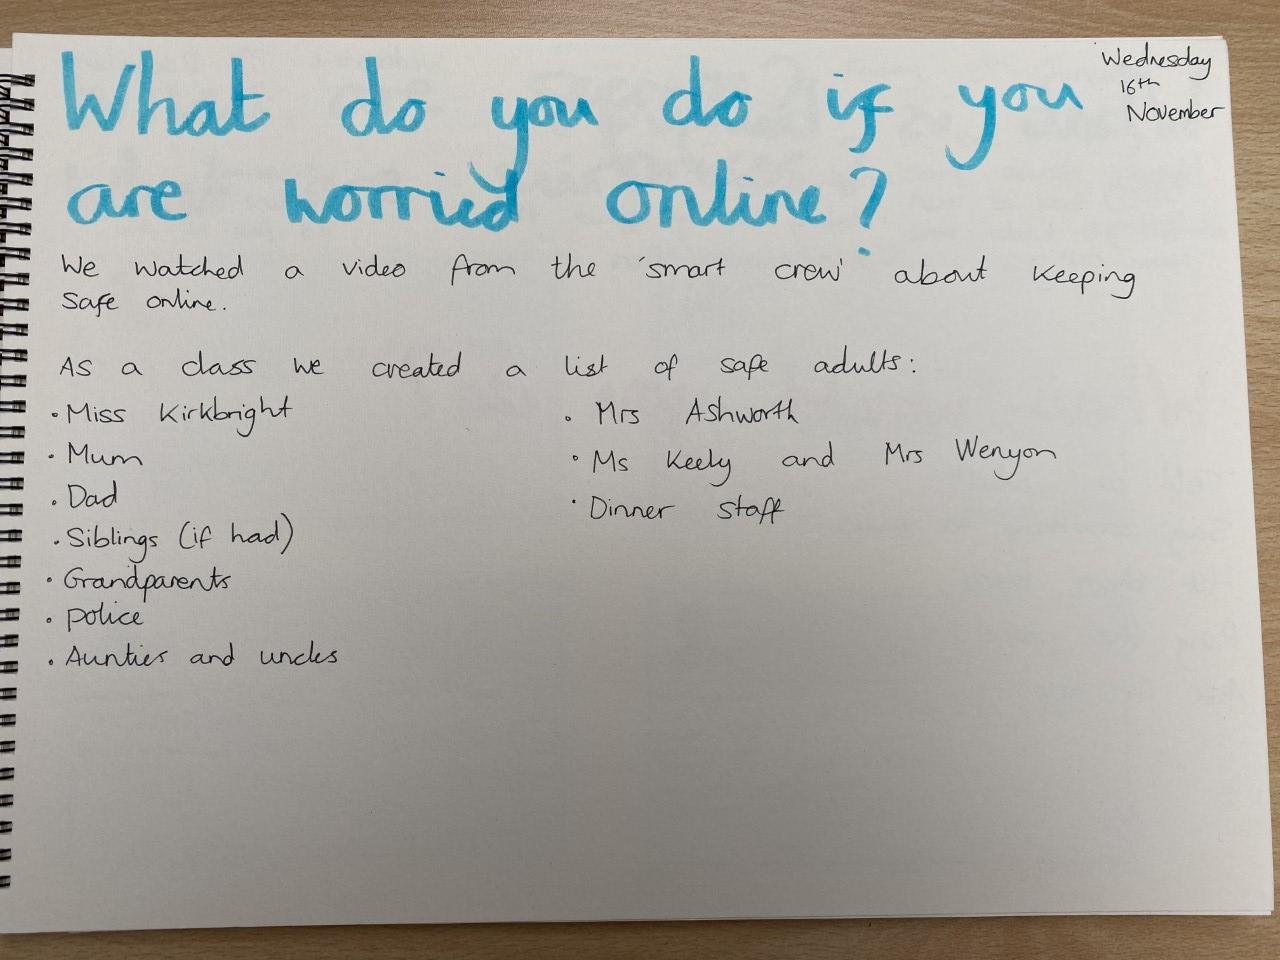 What do you do if you
are worried online?
Wednesday
16th
November
We watched a video from the 'smart crew' about keeping
safe online.
As a class we created a list of safe adults:
• Miss Kirkbright
• Mum
• Dad
• Siblings (if had)
• Grandparents
• police
• Aunties and uncles
• Mrs Ashworth
• Ms Keely and Mrs Wenyon
• Dinner staff